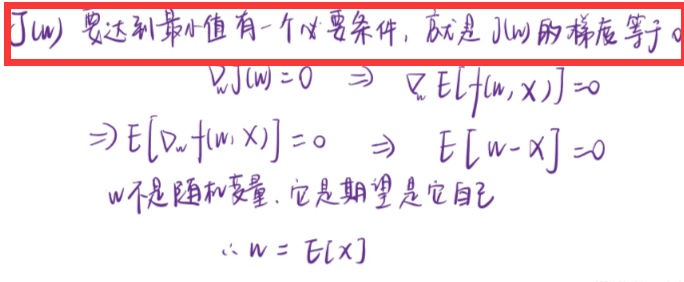 J(w) 要达到最小值有一个必要条件, 就是 J(w) 的梯度等于 0
∇wJ(w)=0 ⇒ ∇w E[f(w,X)]=0
⇒ E[∇w f(w,X)]=0 ⇒ E[w-X]=0
w不是随机变量.它是期望是它自己
∴ w = E[X]